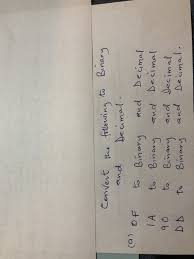 Convert the following to Binary
and Decimal.
(a) OF to Binary and Decimal
1A to Binary and Decimal
90 to Binary and Decimal
DD to Binary and Decimal.